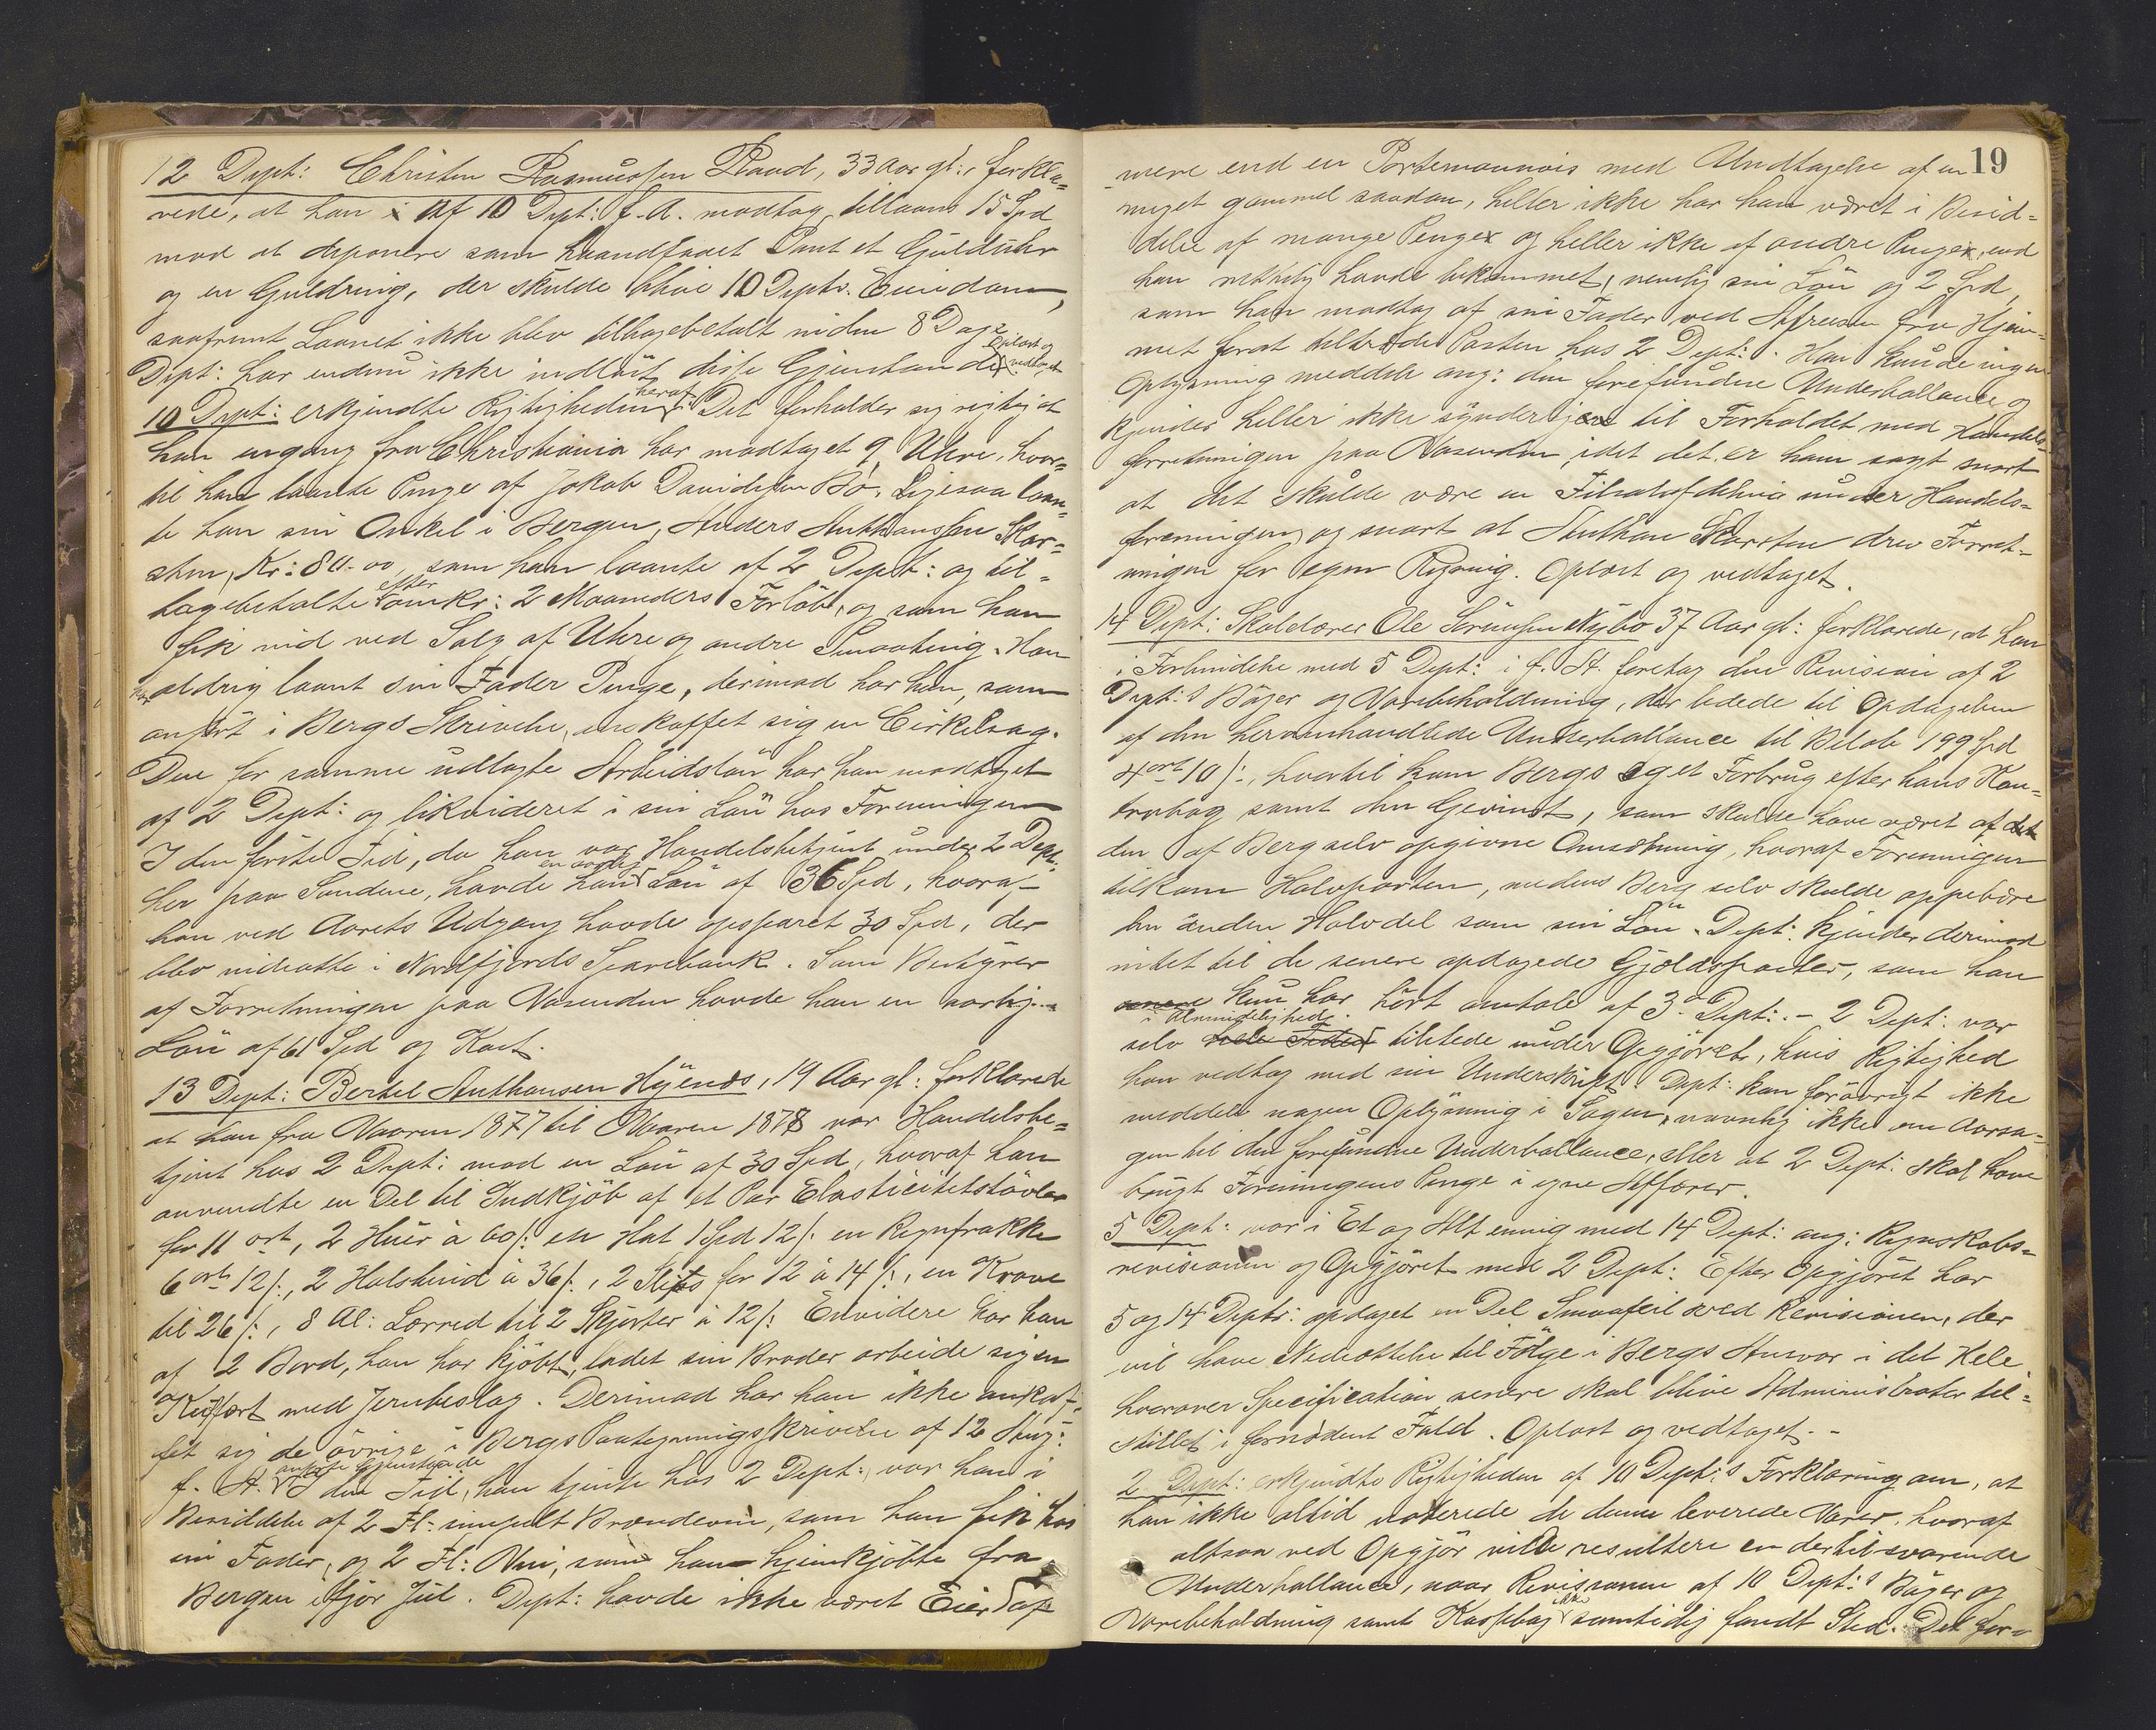 12 Dept: Christen Rasmussen Raad, 33 Aar gl:, forkla=
rede, at han af 10 Dept: f. A. modtog tillaans 15 Spd
mod at deponere som haandfaaet Pant et Gulduhr
og en Guldring, der skulde blive 10 Depts. Eiendom,
saafremt Laanet ikke blev tilbagebetalt inden 8 Dage
Dept: har endnu ikke indløst disse Gjenstande. Oplæst og vedtaget
10 Dept: erkjendte Rigtigheden heraf. Det forholder sig rigtigt at
han engang fra Christiania har modtaget 9 Uhre, hvor=
til han laante Penge af Jakob Davidsen Bø. Ligesaa laan=
te han sin Onkel i Bergen, Anders Anthonssen Skar=
sten, Kr: 80.00, som han laante af 2 Dept: og til=
bagebetalte efter omkr: 2 Maaneders Forløb, og som han
fik ind ved Salg af Uhre og andre Smaating. Han
har aldrig laant sin Fader Penge, derimod har han, som
anført i Bergs Skrivelse, anskaffet sig en Cirkelsag.
Den for samme udlagte Arbeidsløn har han modtaget
af 2 Dept: og likvideret i sin Løn hos Foreningen
I den første Tid, da han var Handelsbetjent under 2 Dept:
her paa Sandene, havde han en aarlig Løn af 36 Spd, hvoraf
han ved Aarets Udgang havde opsparet 30 Spd, der
blev indsatte i Nordfjords Sparebank. Som Bestyrer
af Forretningen paa Vasenden havde han en aarlig
Løn af 61 Spd og Kost.
13 Dept: Bertel Anthonsen Høienes, 19 Aar gl: forklarede
at han fra Vaaren 1877 til Vaaren 1878 var Handelsbe=
tjent hos 2 Dept: mod en Løn af 30 Spd, hvoraf han
anvendte en Del til Indkjøb af et Par Elasticitetstøvler
for 11 ort, 2 Huer à 60 /: en Hat 1 Spd 12 /: en Regnfrakke
6 ort 12 /:, 2 Halstuid à 36 /:, 2 Slips for 12 à 14 /:, en Krave
til 26 /:, 8 Al: Lærred til 2 Skjorter à 12 /: Envidere har han
af 2 Bord, han har kjøbt, ladet sin Broder arbeide sig en
Kuffert med Jernbeslag. Derimod har han ikke anskaf=
fet sig de øvrige i Bergs Paategningsskrivelse af 12 Aug:
f. A. anførte Gjenstande I den Tid, han tjente hos 2 Dept:, var han i
Besiddelse af 2 Fl: simpelt Brændevin, som han fik hos
sin Fader, og 2 Fl: Vin, som han hjemkjøbte fra
Bergen ifjor Jul. Dept: havde ikke været Eier af
19
mere end en Portemonnois med Undtagelse af en
meget gammel saadan, heller ikke har han været i Besid=
delse af mange Penge og heller ikke af andre Penge, end
han retteligt havde bekommet, nemlig sin Løn og 2 Spd,
som han modtog af sin Fader ved Afreisen fra Hjem=
met forat tiltræde Posten hos 2 Dept:. Han kunde ingen
Oplysning meddele ang: den forefundne Underballance og
kjender heller ikke synderligen til Forholdet med Handels=
forretningen paa Vasenden, idet det er ham sagt snart
at det skulde være en Filialafdeling under Handels=
foreningen og snart at Anthon Skarsten drev Forret=
ningen for egen Regning. Oplæst og vedtaget.
14 Dept: Skolelærer Ole Sørensen Nybø 37 Aar gl: forklarede, at han
i Forbindelse med 5 Dept: i f. A. foretog den Revision af 2
Dept:s Bøger og Varebeholdning, der ledede til Opdagelsen
af den heromhandlede Underballance til Beløb 199 Spd
4 ort 10 /:, hvortil kom Bergs eget Forbrug efter hans Kon=
trabog samt den Gevinst, som skulde have været af
den af Berg selv opgivne Omsætning, hvoraf Foreningen
tilkom Halvparten, medens Berg selv skulde oppebære
den anden Halvdel som sin Løn. Dept: kjender derimod
intet til de senere opdagede Gjældsposter, som han
senere kun har hørt omtale af 3 Dept:. – 2 Dept: var
selv i Almindelighed hele Tiden tilstede under Opgjøret, hvis Rigtighed
han vedtog med sin Underskrift. Dept: kan forøvrigt ikke
meddele nogen Oplysning i Sagen, navnlig ikke om Aarsa=
gen til den forefundne Underballance, eller at 2 Dept: skal have
brugt Foreningens Penge i egne Affærer.
5 Dept: var i Et og Alt enig med 14 Dept: ang: Regnskabs=
revisionen og Opgjøret med 2 Dept: Efter Opgjøret har
5 og 14 Deptr: opdaget en Del Smaafeil ved Revisionen, der
vil have Nedsættelse til Følge i Bergs Ansvar i det Hele,
hvorover Specification senere skal blive Administrator til=
stillet i fornødent Fald. Oplæst og vedtaget. –
2 Dept: erkjendte Rigtigheden af 10 Dept:s Forklaring om, at
han ikke altid noterede de denne leverede Varer, hvoraf
altsaa ved Opgjør vilde resultere en dertil svarende
Underballance, naar Revisionen af 10 Dept:s Bøger og
Varebeholdning samt Kassebog ikke samtidig fandt Sted. Det for=